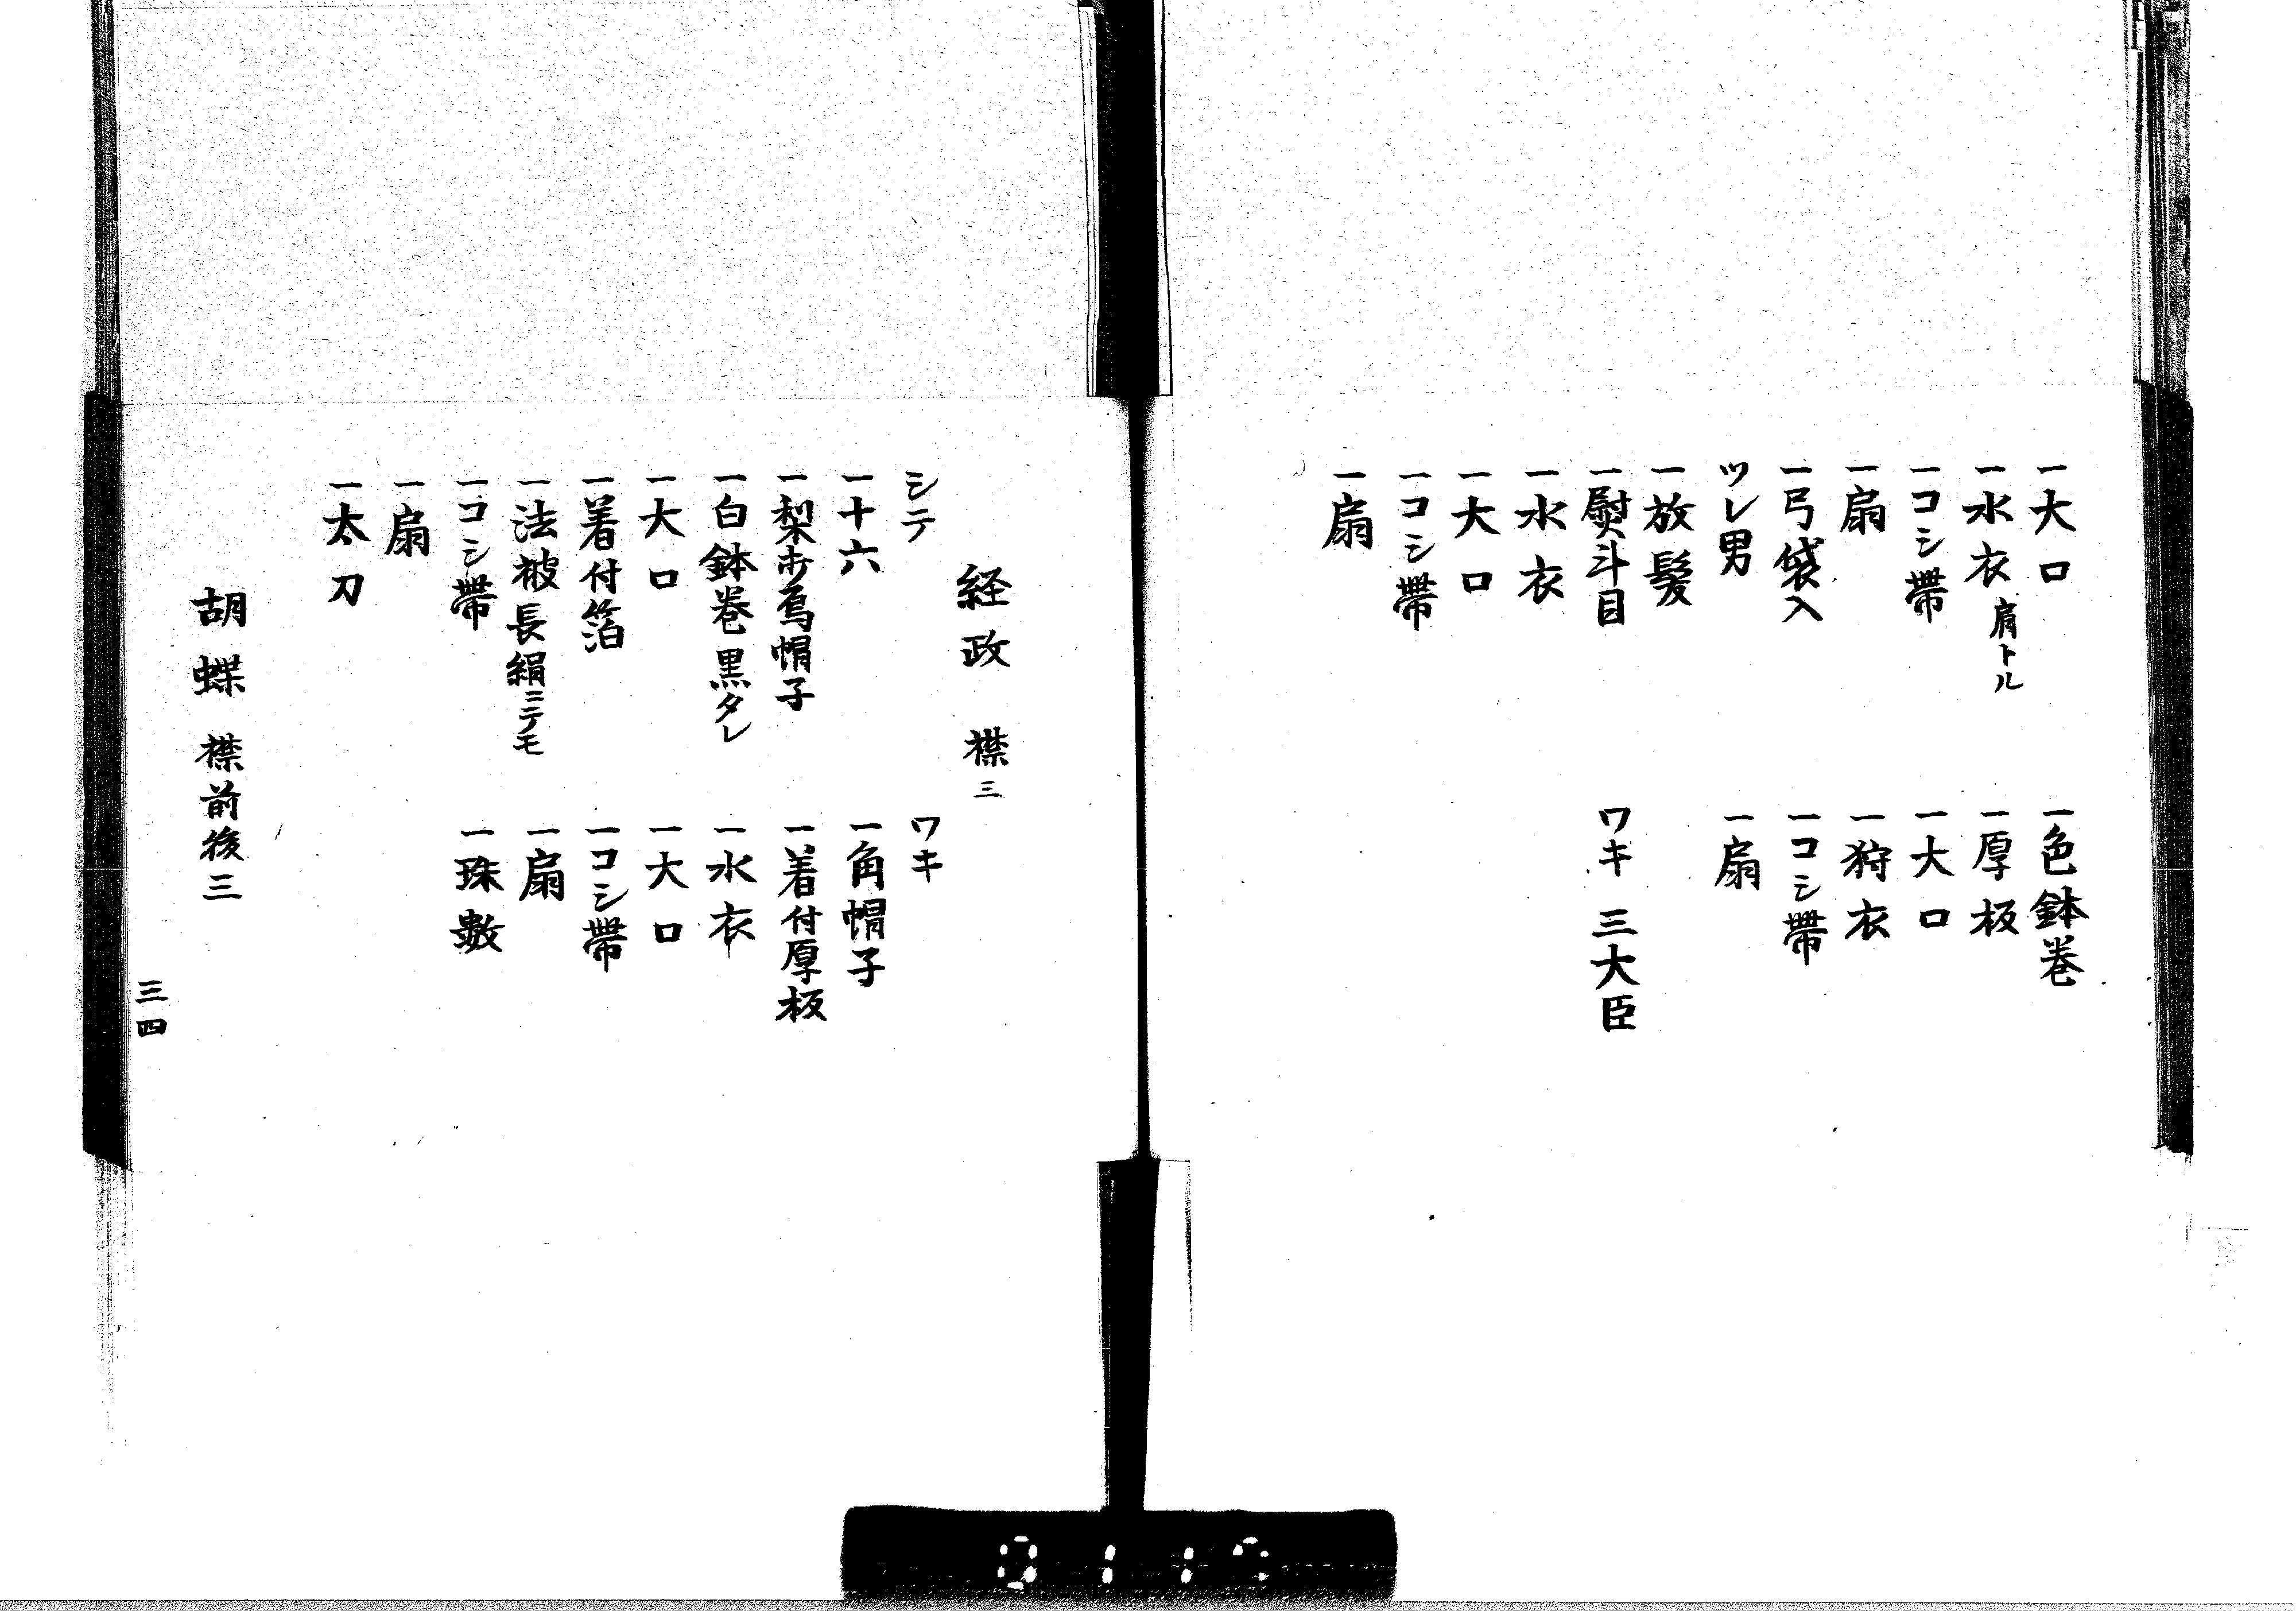 一大口
一水衣 肩トル
一コシ帯
一扇
一弓袋入
ツレ男
一放髪
一熨斗目
一水衣
一大口
一コシ帯
一扇
一色鉢巻
一厚板
一大口
一狩衣
一コシ帯
一扇
ワキ 三大臣
経政 襟三
シテ
一十六
一梨ホウ烏帽子
一白鉢巻 黒タレ
一大口
一着付箔
一法被 長絹ニテモ
一コシ帯
一扇
一太刀
ワキ
一角帽子
一着付厚板
一水衣
一大口
一コシ帯
一扇
一珠数
胡蝶 襟前後三
三四